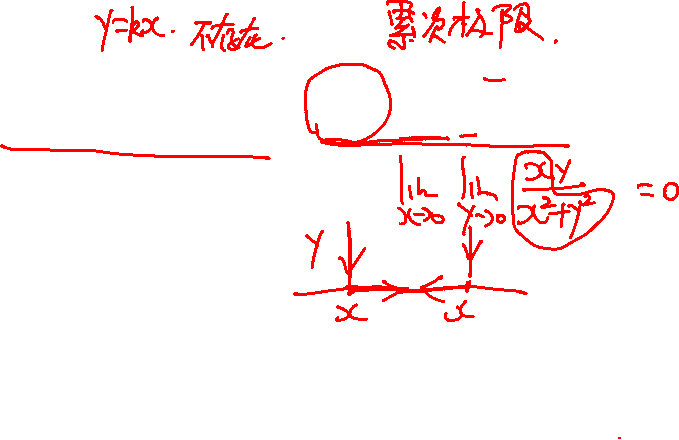 y=kx. 不存在. 累次极限.
lim x→0 lim y→0 xy/(x²+y²) = 0
y
x x